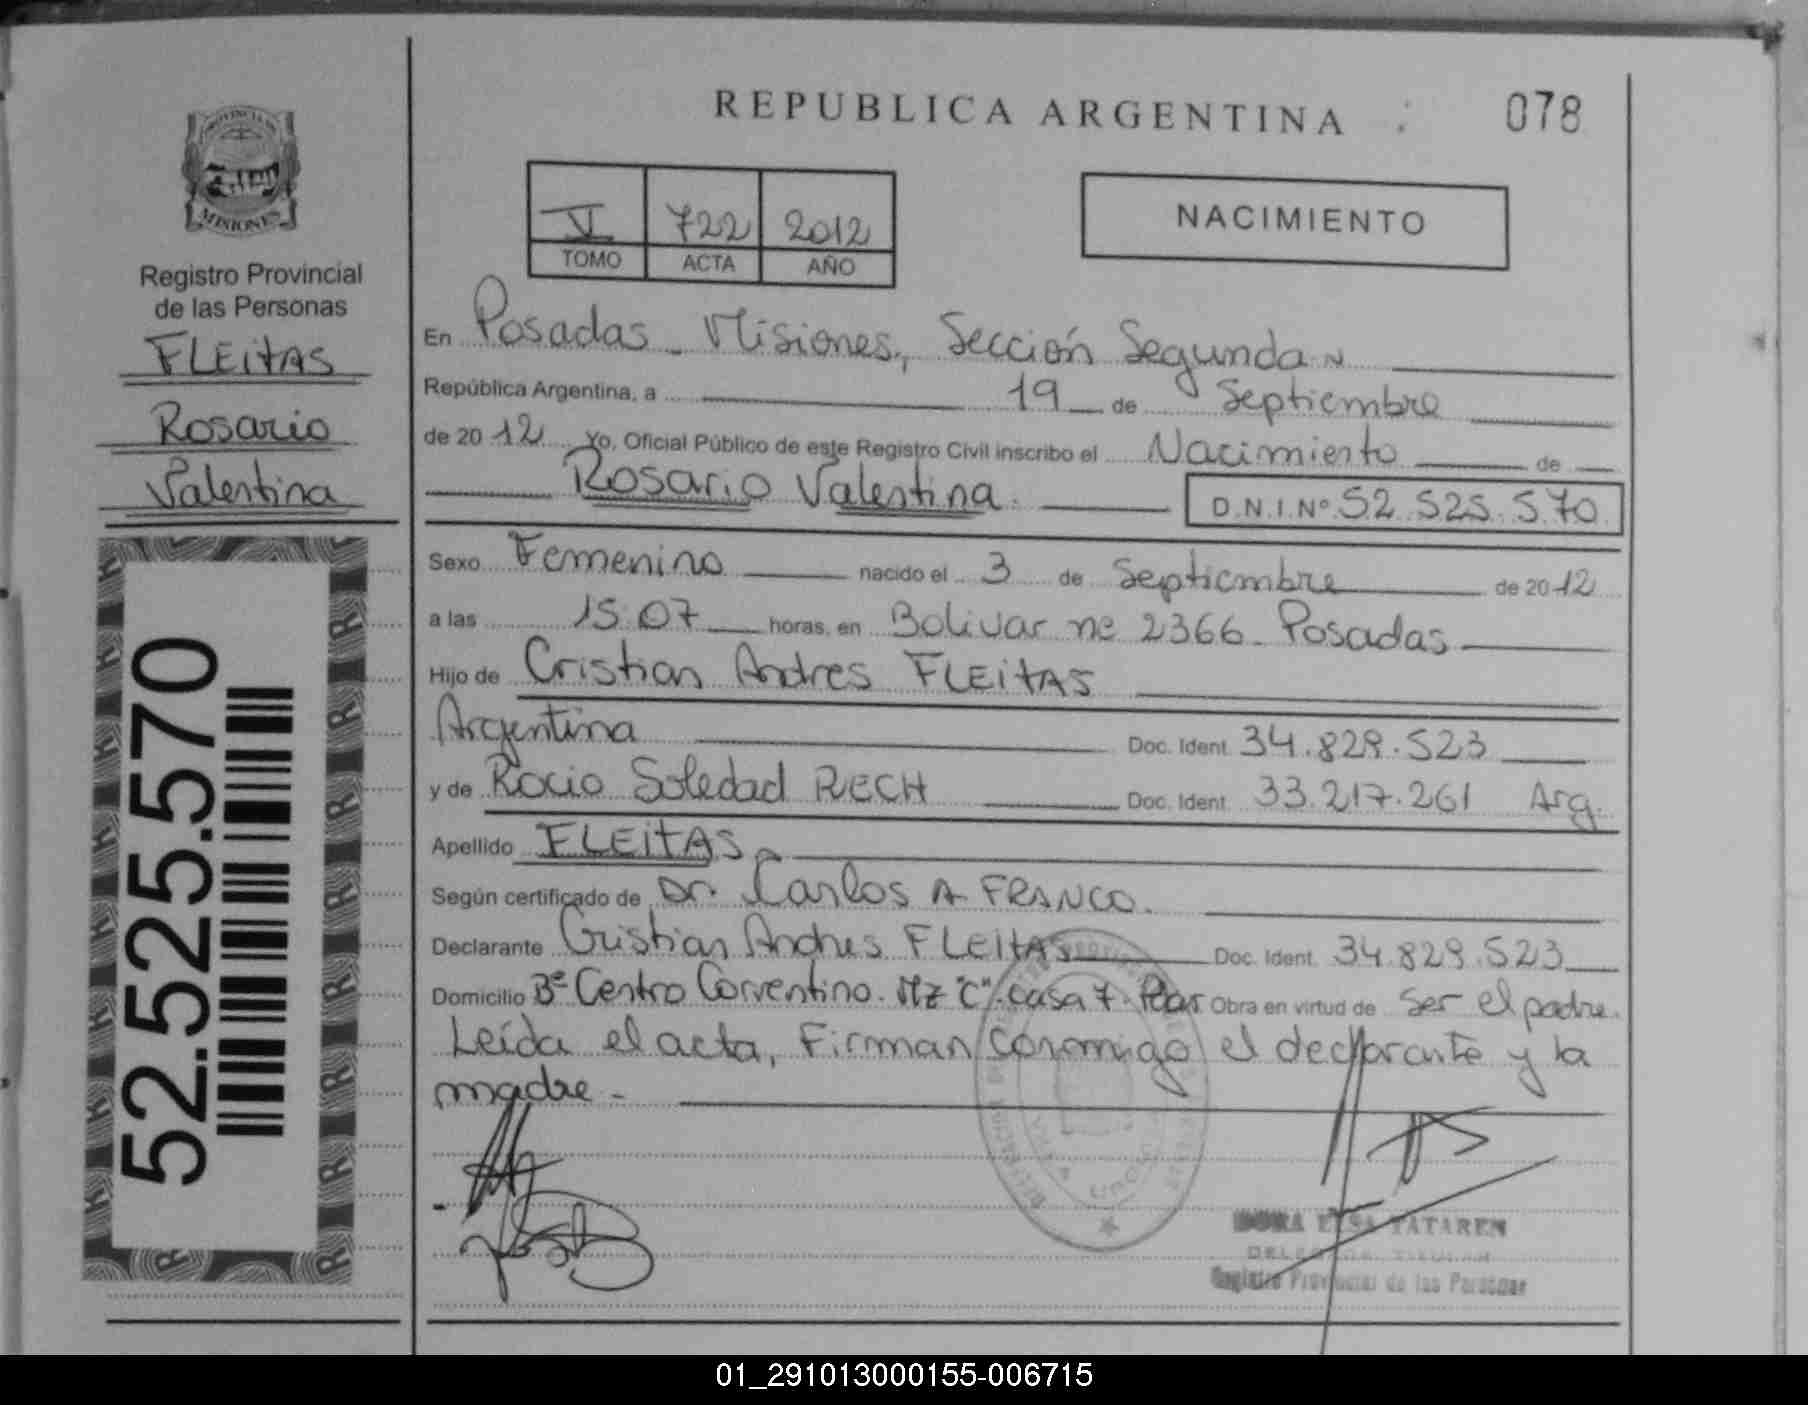 REPUBLICA ARGENTINA
078
PROVINCIA DE
MISIONES
Registro Provincial
de las Personas
FLEITAS
Rosario
Valentina
52.525.570
VI 722 2012
TOMO ACTA AÑO
NACIMIENTO
En Posadas - Misiones, Sección Segunda
República Argentina, a 19 de Septiembre
de 2012 Yo, Oficial Público de este Registro Civil inscribo el Nacimiento de
Rosario Valentina. D.N.I.Nº 52.525.570
Sexo Femenino nacido el 3 de Septiembre de 2012
a las 15:07 horas, en Bolivar nº 2366 - Posadas
Hijo de Cristian Andres FLEITAS
Argentina Doc. Ident. 34.829.523
y de Rocio Soledad RECH Doc. Ident. 33.217.261 Arg.
Apellido FLEITAS
Según certificado de Dr. Carlos A FRANCO.
Declarante Cristian Andres FLEITAS Doc. Ident. 34.829.523
Domicilio Bº Centro Correntino. Mz "C". casa 7. Obra en virtud de Ser el padre.
Leída el acta, Firman conmigo el declarante y la
madre.-
TATAREN
DELEGADA TITULAR
Registro Provincial de las Personas
01_291013000155-006715